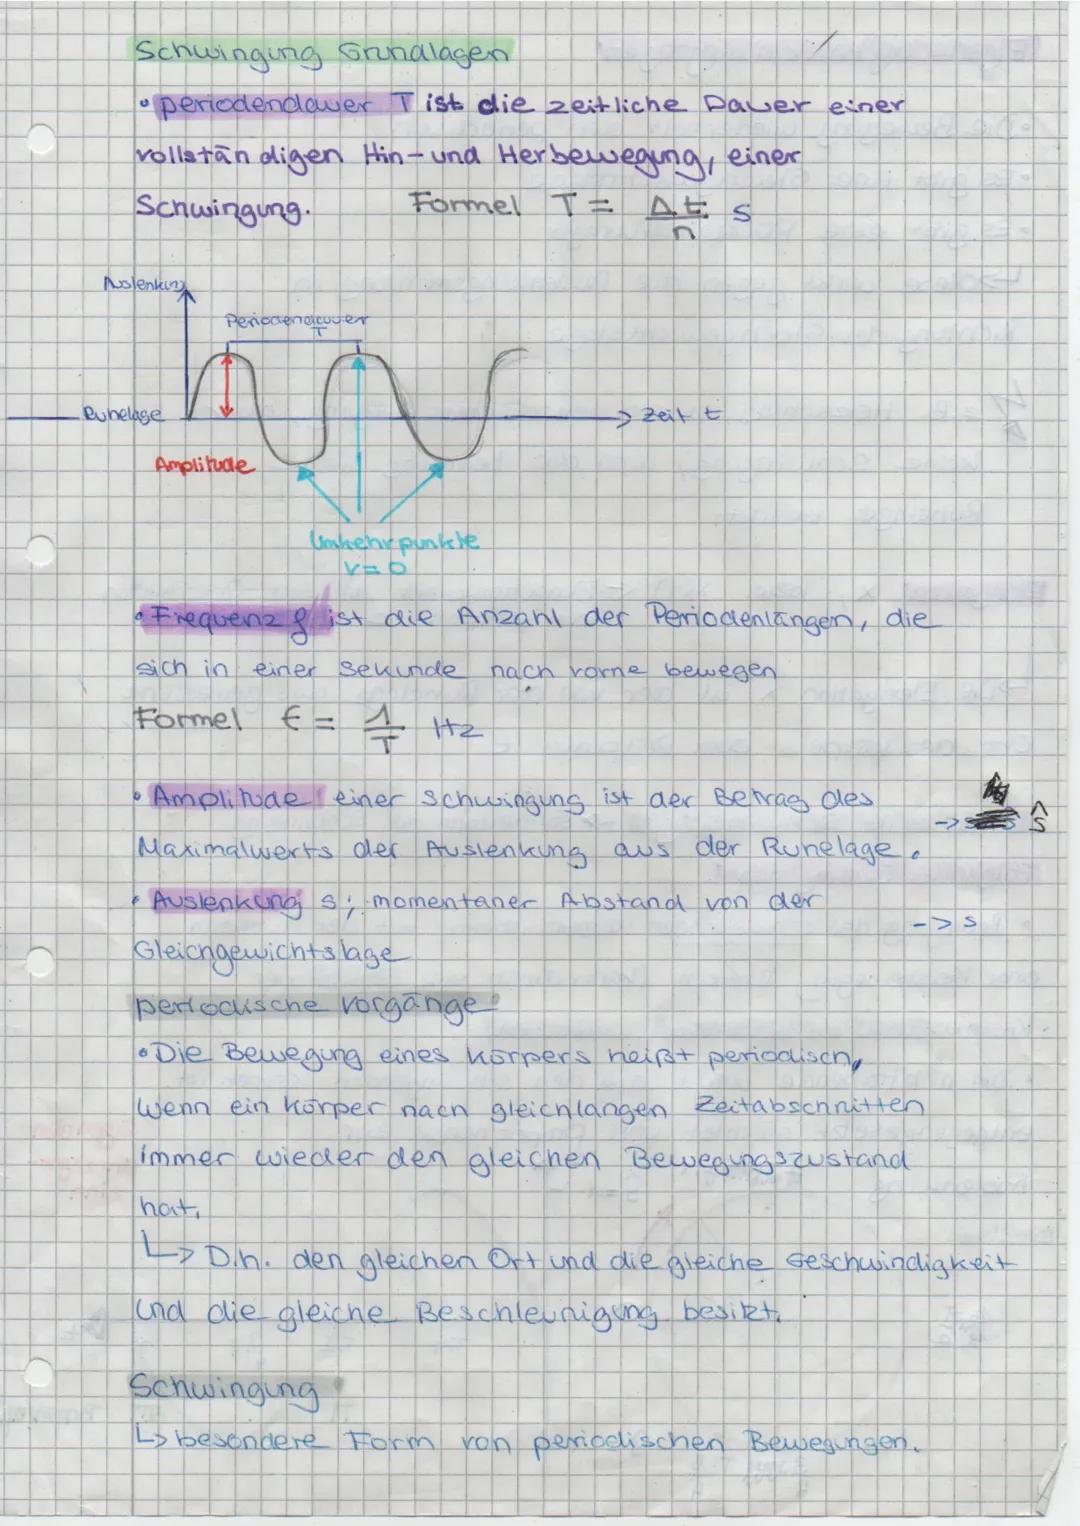 Schwingung Grundlagen
• periodendauer T ist die zeitliche Dauer einer
vollständigen Hin- und Herbewegung, einer
Schwingung. Formel T = Δt/n s
Auslenkung
Periodendauer
T
Ruhelage
-> Zeit t
Amplitude
Umkehrpunkte
v=0
• Frequenz f ist die Anzahl der Periodenlängen, die
sich in einer Sekunde nach vorne bewegen
Formel f = 1/T Hz
• Amplitude einer Schwingung ist der Betrag des
-> ŝ
Maximalwerts der Auslenkung aus der Ruhelage.
• Auslenkung s; momentaner Abstand von der
-> s
Gleichgewichtslage
periodische Vorgänge
• Die Bewegung eines Körpers heißt periodisch,
wenn ein Körper nach gleichlangen Zeitabschnitten
immer wieder den gleichen Bewegungszustand
hat,
↳ D.h. den gleichen Ort und die gleiche Geschwindigkeit
und die gleiche Beschleunigung besitzt.
Schwingung
↳ besondere Form von periodischen Bewegungen.